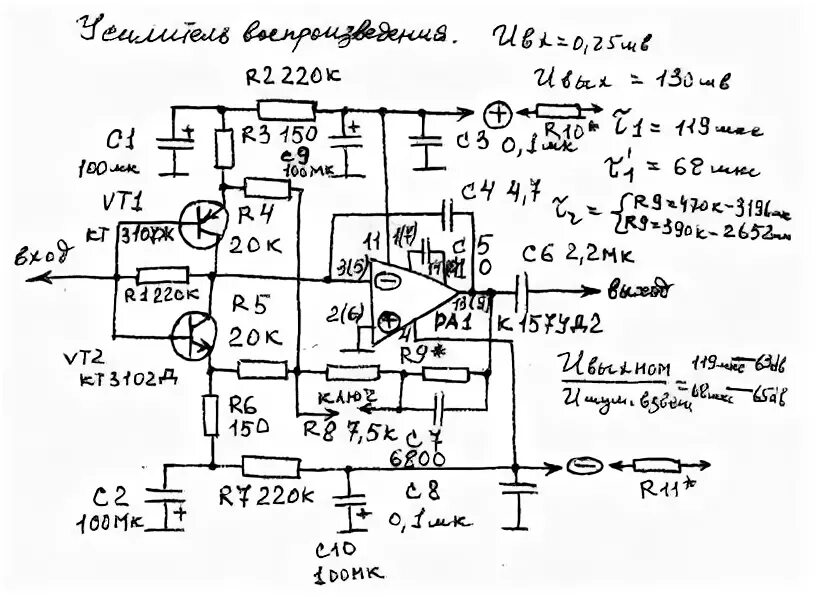 Усилитель воспроизведения. Uвх=0,25мв
Uвых = 130мв
R2 220К
C1
100мк
R3 150
C9
100МК
C3
0,1мк
R10*
τ1 = 119мкс
τ'1 = 68мкс
τ2 = {R9=470к-3196мкс
R9=390к-2652мкс
VT1
КТ 3107Ж
R4
20К
C4 4,7
C5
11
1(7)
3(5)
2(6)
4
13(9)
DA1
К 157УД2
C6 2,2МК
вход
выход
R1 220К
R5
20К
VT2
КТ3102Д
R9*
КЛЮЧ
R8 7,5К
C7
6800
R6
150
Uвых ном
Uшум. взвеш
= 119мкс—63дв
68мкс—65дв
C2
100МК
R7 220К
C8
0,1мк
R11*
C10
100МК